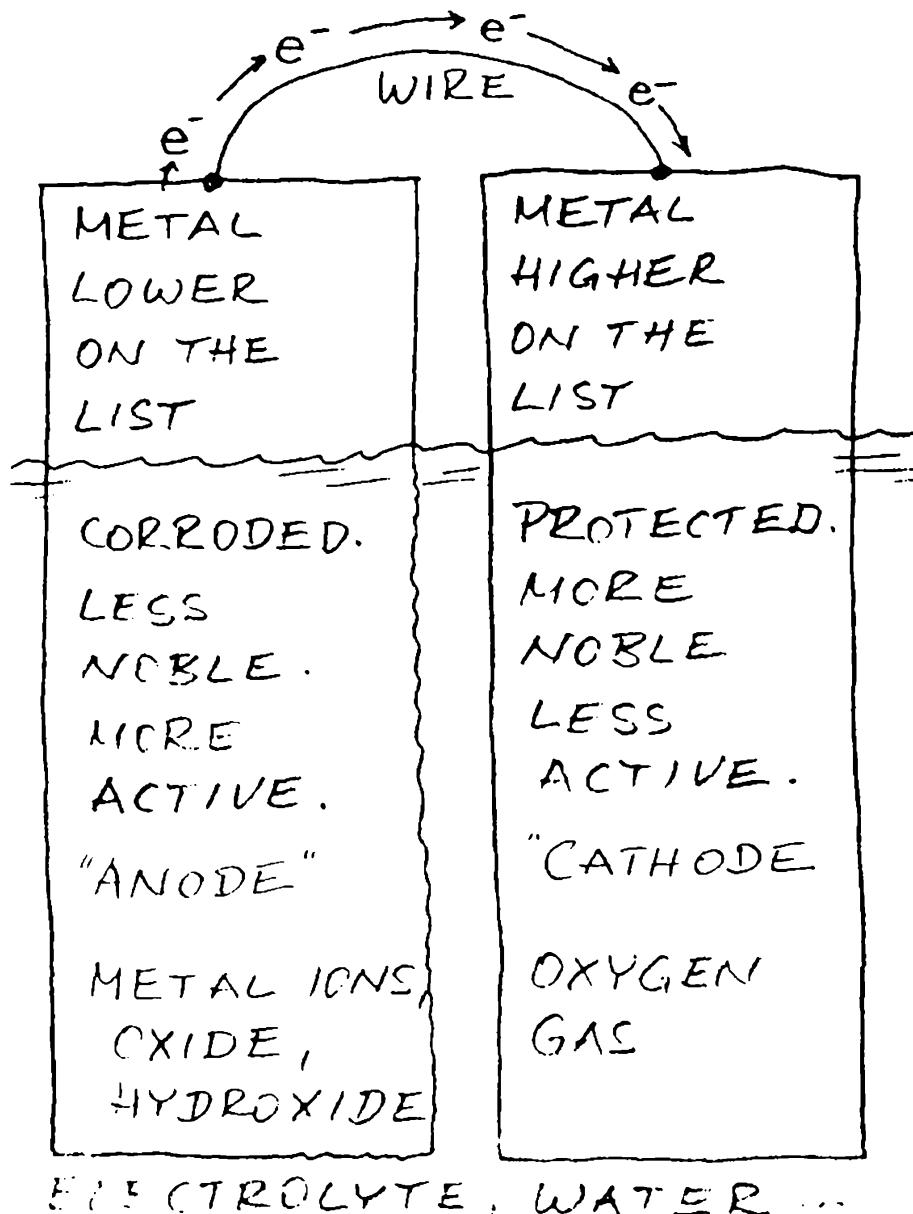 e⁻ e⁻ e⁻ e⁻
WIRE
METAL
LOWER
ON THE
LIST
CORRODED.
LESS
NOBLE.
MORE
ACTIVE.
"ANODE"
METAL IONS,
OXIDE,
HYDROXIDE
METAL
HIGHER
ON THE
LIST
PROTECTED.
MORE
NOBLE
LESS
ACTIVE.
"CATHODE
OXYGEN
GAS
ELECTROLYTE, WATER ...